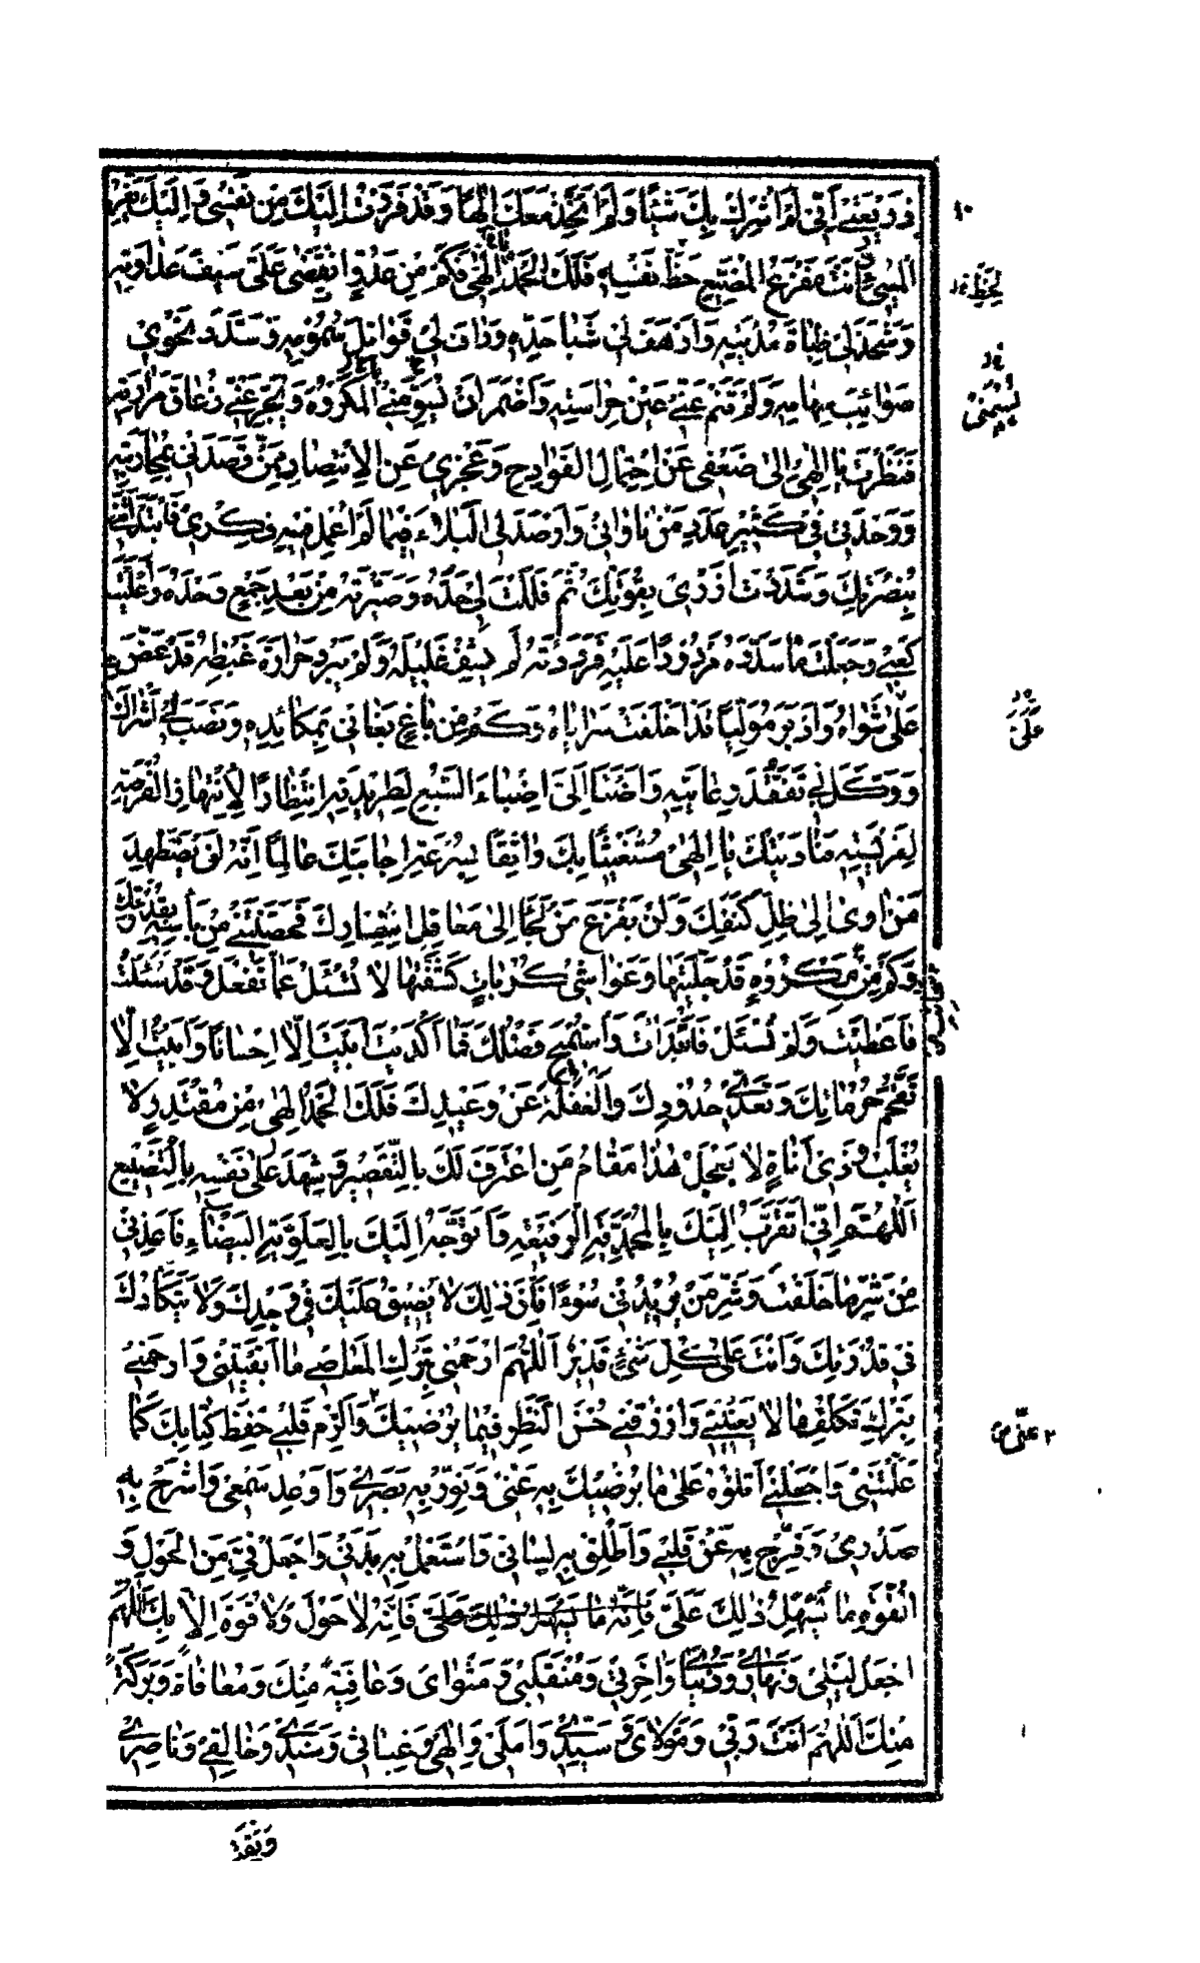 ذَرِيعَتِي أَنِّي لَمْ أُشْرِكْ بِكَ شَيْئًا وَلَمْ أَتَّخِذْ مَعَكَ إِلٰهًا وَقَدْ فَرَرْتُ إِلَيْكَ مِنْ نَفْسِي وَإِلَيْكَ مَفَرُّ
الْمُسِيءِ أَنْتَ مَفْزَعُ الْمُضَيِّعِ حَظَّ نَفْسِهِ فَلَكَ الْحَمْدُ إِلٰهِي فَكَمْ مِنْ عَدُوٍّ انْتَضَى عَلَيَّ سَيْفَ عَدَاوَتِهِ
وَشَحَذَ لِي ظُبَاةَ مُدْيَتِهِ وَأَرْهَفَ لِي شَبَا حَدِّهِ وَدَافَ لِي قَوَاتِلَ سُمُومِهِ وَسَدَّدَ نَحْوِي
صَوَائِبَ سِهَامِهِ وَلَمْ تَنَمْ عَنِّي عَيْنُ حِرَاسَتِهِ وَأَضْمَرَ أَنْ يَسُومَنِي الْمَكْرُوهَ وَيُجَرِّعَنِي زُعَاقَ مَرَارَتِهِ
فَنَظَرْتَ يَا إِلٰهِي إِلَى ضَعْفِي عَنِ احْتِمَالِ الْفَوَادِحِ وَعَجْزِي عَنِ الِانْتِصَارِ مِمَّنْ قَصَدَنِي بِمُحَارَبَتِهِ
وَوَحْدَتِي فِي كَثِيرِ عَدَدِ مَنْ نَاوَانِي وَأَرْصَدَ لِيَ الْبَلَاءَ فِيمَا لَمْ أُعْمِلْ فِيهِ فِكْرِي فَابْتَدَأْتَنِي
بِنَصْرِكَ وَشَدَدْتَ أَزْرِي بِقُوَّتِكَ ثُمَّ فَلَلْتَ لِي حَدَّهُ وَصَيَّرْتَهُ مِنْ بَعْدِ جَمْعٍ وَحْدَهُ وَأَعْلَيْتَ
كَعْبِي وَجَعَلْتَ مَا سَدَّدَهُ مَرْدُودًا عَلَيْهِ فَرَدَدْتَهُ لَمْ يَشْفِ غَلِيلَهُ وَلَمْ يَبْرُدْ حَرَارَةُ غَيْظِهِ قَدْ عَضَّ
عَلَى شَوَاهُ وَأَدْبَرَ مُوَلِّيًا قَدْ أَخْلَفَتْ سَرَايَاهُ وَكَمْ مِنْ بَاغٍ بَغَانِي بِمَكَائِدِهِ وَنَصَبَ لِي أَشْرَاكَ
وَوَكَّلَ بِي تَفَقُّدَ رِعَايَتِهِ وَأَضْبَأَ إِلَيَّ إِضْبَاءَ السَّبُعِ لِطَرِيدَتِهِ انْتِظَارًا لِانْتِهَازِ الْفُرْصَةِ
لِفَرِيسَتِهِ فَنَادَيْتُكَ يَا إِلٰهِي مُسْتَغِيثًا بِكَ وَاثِقًا بِسُرْعَةِ إِجَابَتِكَ عَالِمًا أَنَّهُ لَنْ يُضْطَهَدَ
مَنْ أَوَى إِلَى ظِلِّ كَنَفِكَ وَلَنْ يَفْزَعَ مَنْ لَجَأَ إِلَى مَعَاقِلِ انْتِصَارِكَ فَحَصَّنْتَنِي مِنْ بَأْسِهِ بِقُدْرَتِكَ
وَكَمْ مِنْ مَكْرُوهٍ قَدْ جَلَّيْتَهَا وَغَوَاشِي كُرُبَاتٍ كَشَفْتَهَا لَا تُسْئَلُ عَمَّا تَفْعَلُ وَقَدْ سُئِلْتَ
فَأَعْطَيْتَ وَلَمْ تُسْئَلْ فَابْتَدَأْتَ وَاسْتُمِيحَ فَضْلُكَ فَمَا أَكْدَيْتَ أَبَيْتَ إِلَّا إِحْسَانًا وَأَبَيْتُ إِلَّا
تَقَحُّمَ حُرُمَاتِكَ وَتَعَدِّيَ حُدُودِكَ وَالْغَفْلَةَ عَنْ وَعِيدِكَ فَلَكَ الْحَمْدُ إِلٰهِي مِنْ مُقْتَدِرٍ لَا
يُغْلَبُ وَذِي أَنَاةٍ لَا يَعْجَلُ هٰذَا مَقَامُ مَنِ اعْتَرَفَ لَكَ بِالتَّقْصِيرِ وَشَهِدَ عَلَى نَفْسِهِ بِالتَّضْيِيعِ
اَللّٰهُمَّ إِنِّي أَتَقَرَّبُ إِلَيْكَ بِالْمُحَمَّدِيَّةِ الرَّفِيعَةِ وَأَتَوَجَّهُ إِلَيْكَ بِالْعَلَوِيَّةِ الْبَيْضَاءِ فَأَعِذْنِي
مِنْ شَرِّ مَا خَلَقْتَ وَشَرِّ مَنْ يُرِيدُنِي سُوءًا فَإِنَّ ذٰلِكَ لَا يَضِيقُ عَلَيْكَ فِي وُجْدِكَ وَلَا يَتَكَأَّدُكَ
فِي قُدْرَتِكَ وَأَنْتَ عَلَى كُلِّ شَيْءٍ قَدِيرٌ اَللّٰهُمَّ ارْحَمْنِي بِتَرْكِ الْمَعَاصِي مَا أَبْقَيْتَنِي وَارْحَمْنِي
بِتَرْكِ تَكَلُّفِ مَا لَا يَعْنِينِي وَارْزُقْنِي حُسْنَ النَّظَرِ فِيمَا يُرْضِيكَ وَأَلْزِمْ قَلْبِي حِفْظَ كِتَابِكَ كَمَا
عَلَّمْتَنِي وَاجْعَلْنِي أَتْلُوهُ عَلَى مَا يُرْضِيكَ بِهِ عَنِّي وَنَوِّرْ بِهِ بَصَرِي وَأَوْعِهِ سَمْعِي وَاشْرَحْ بِهِ
صَدْرِي وَفَرِّجْ بِهِ عَنْ قَلْبِي وَأَطْلِقْ بِهِ لِسَانِي وَاسْتَعْمِلْ بِهِ بَدَنِي وَاجْعَلْ فِيَّ مِنَ الْحَوْلِ وَ
الْقُوَّةِ مَا يُسَهِّلُ ذٰلِكَ عَلَيَّ فَإِنَّهُ مَا يُسَهِّلُ ذٰلِكَ عَلَيَّ فَإِنَّهُ لَا حَوْلَ وَلَا قُوَّةَ إِلَّا بِكَ اَللّٰهُمَّ
اجْعَلْ لَيْلِي وَنَهَارِي وَدُنْيَايَ وَآخِرَتِي وَمُنْقَلَبِي وَمَثْوَايَ وَعَافِيَةً مِنْكَ وَمُعَافَاةً وَبَرَكَةً
مِنْكَ اَللّٰهُمَّ أَنْتَ رَبِّي وَمَوْلَايَ وَسَيِّدِي وَأَمَلِي وَإِلٰهِي وَغِيَاثِي وَسَنَدِي وَخَالِقِي وَنَاصِرِي
وَثِقَتِي